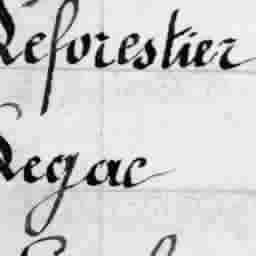 Leforestier
Legac